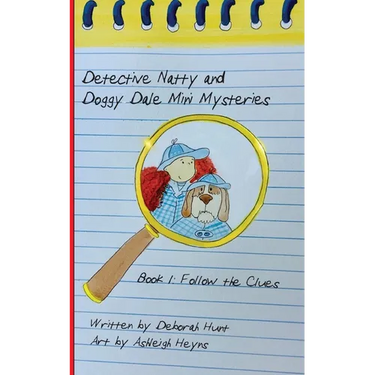 Detective Natty and
Doggy Dale Mini Mysteries
Book 1: Follow the Clues
Written by Deborah Hunt
Art by Ashleigh Heyns